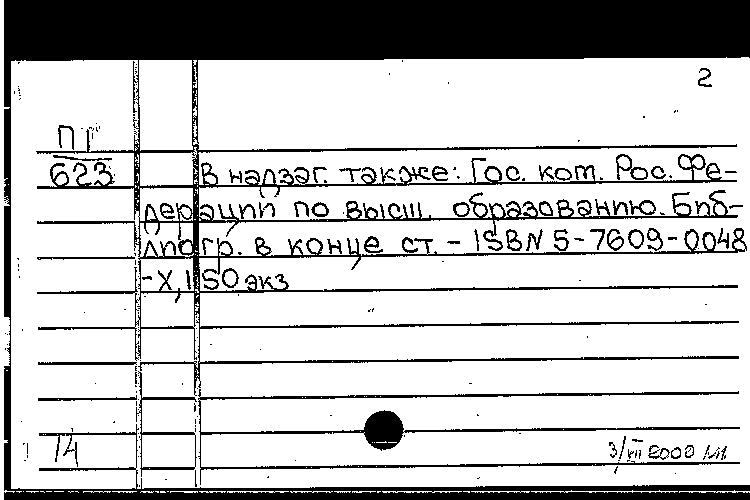 2
ПГ
623
В надзаг. также: Гос. ком. Рос. Фе-
дерации по высш. образованию. Биб-
лиогр. в конце ст. - ISBN 5-7609-0048
-X, 150 экз
14
3/VII 2000